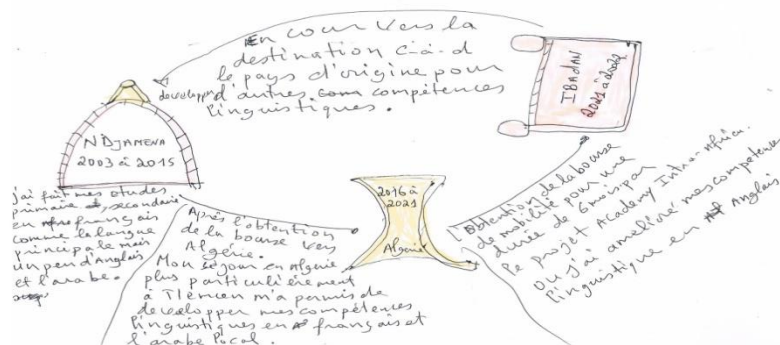 En cour vers la
destination c-à-d
le pays d'origine pour
developper d'autres compétences
linguistiques.
IBADAN
2021 à 2022
N'DJAMENA
2003 à 2015
2016 à
2021
Algérie
j'ai fait mes études
primaire, secondaire
en français
comme la langue
principale mais
un peu d'Anglais
et l'arabe.
Après l'obtention
de la bourse vers
Algérie.
Mon séjour en Algérie
plus particulièrement
à Tlemcen m'a permis de
developper mes compétences
linguistiques en français et
l'arabe local.
l'obtention de la bourse
de mobilité pour une
durée de 6 mois par
le projet Academy Intra-Africa.
Où j'ai amélioré mes compétence
linguistique en Anglais